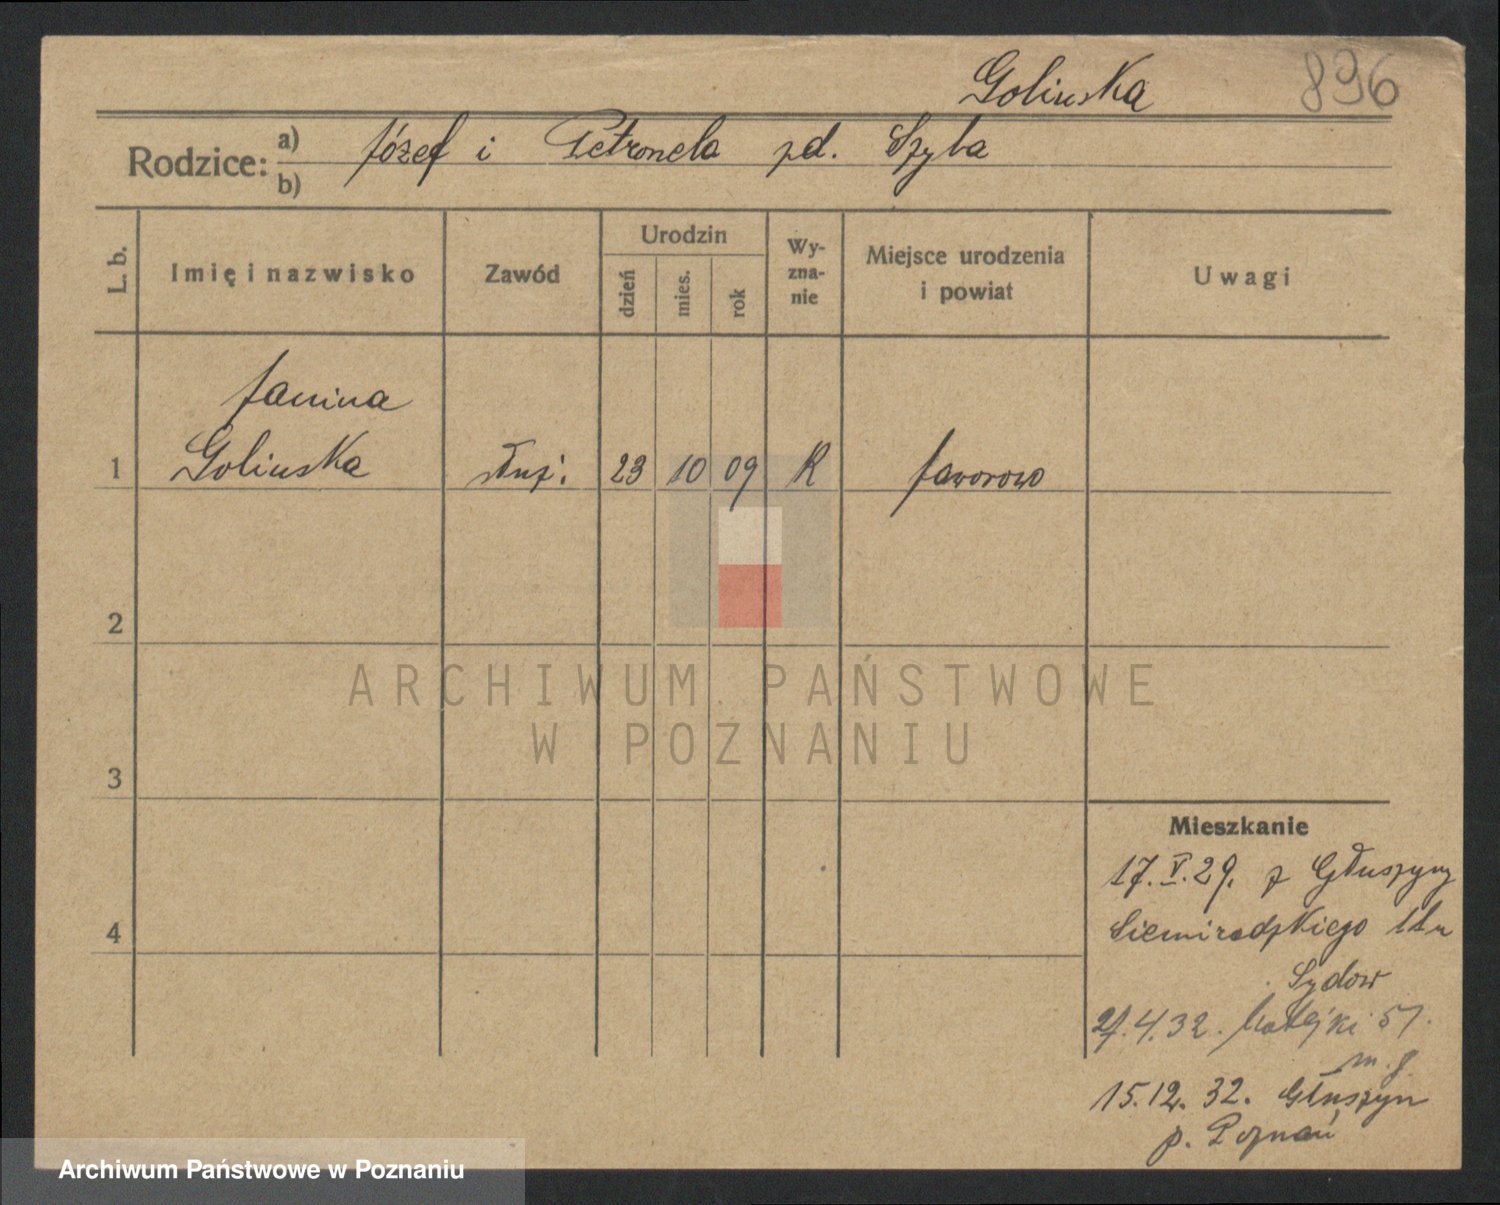 Goliuska 896
Rodzice: a) Józef i Petronela zd. Szyba
b)
L. b. Imię i nazwisko Zawód Urodzin dzień mies. rok Wy-zna-nie Miejsce urodzenia i powiat Uwagi
Janina
1 Goliuska służ. 23 10 09 R Jaworowo
2
3
4
Mieszkanie
17.V.29. z Głuszyny
Siemiradzkiego 11
Sydow
4.32. Matejki 57.
m. 8.
15.12.32. Głuszyn
p. Poznań
ARCHIWUM PAŃSTWOWE
W POZNANIU
Archiwum Państwowe w Poznaniu